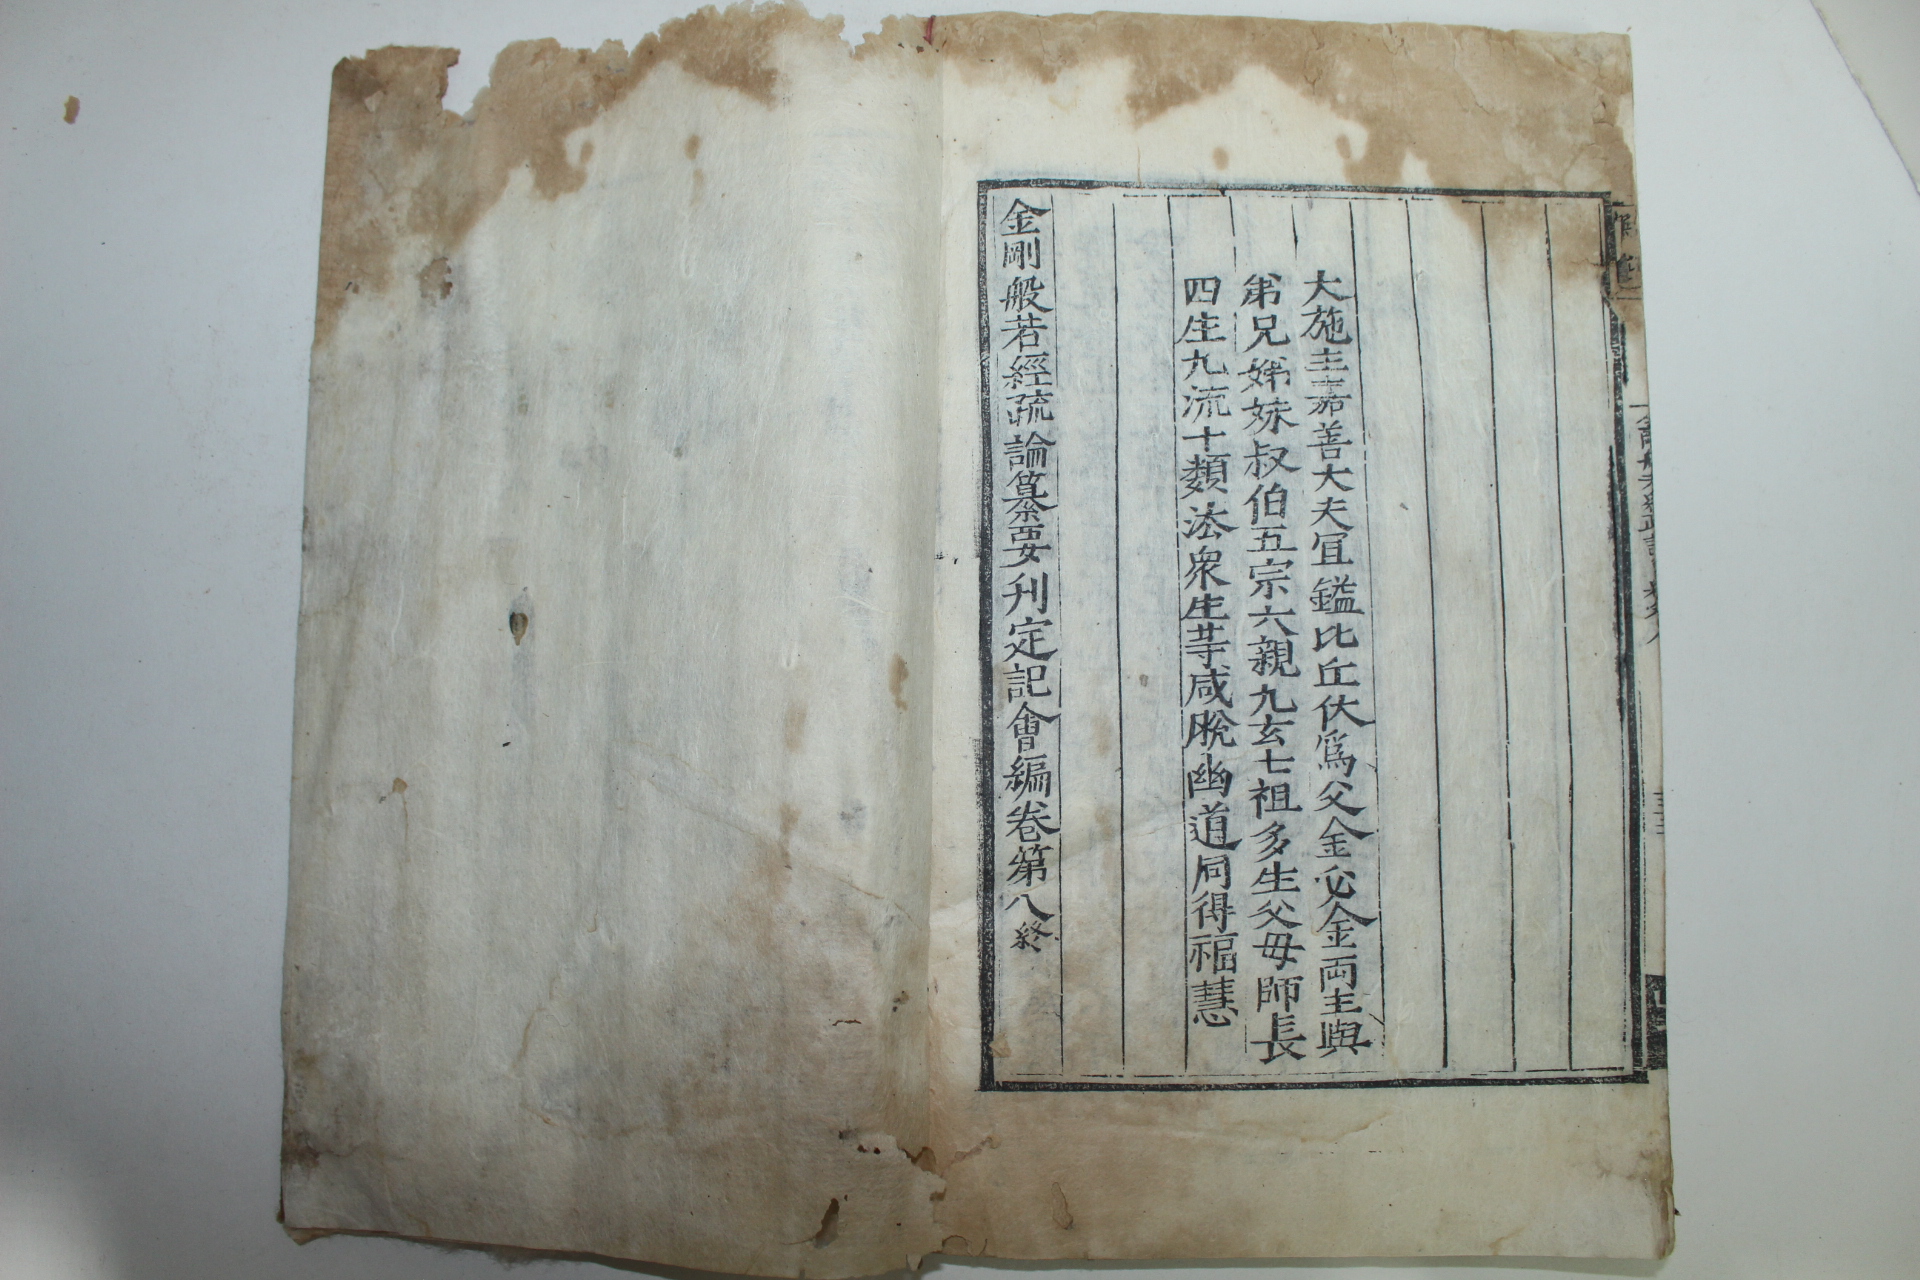 大施主嘉善大夫冝鎰比丘伏爲父金必金両主與
苐兄娣妹叔伯五宗六親九玄七祖多生父母師長
四生九流十類法衆生等咸脫幽道同得福慧
金剛般若經疏論纂要刊定記會編卷第八終